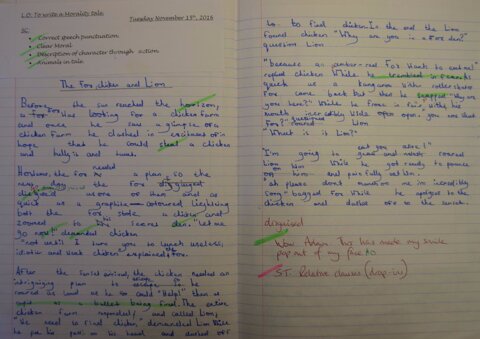 L.O. To write a Morality tale.
Tuesday November 15th, 2016
SC:
Correct speech punctuation
Clear Moral
Description of character through action
Animals in tale
The Fox, chicken and Lion
Before the sun reached the horizon,
a Fox was looking for a chicken farm
and once he saw a glimpse of a
chicken farm he
hope that he could steal a chicken
and bully it and
needed
However, the fox a plan, so the
next day the Fox disguised
as one of them and as
quick as a graphite-coloured lightning
bolt the Fox stole a chicken and
zoomed to his den. "Let me
go now" demanded chicken
"not until I turn you to lunch useless,
idiotic and weak chicken" explained Fox.
After the arrival, the chicken needed an
intriguing plan to escape so he
roared as loud as he could "Help!" then as
rapid as a bullet being fired. The entire
chicken farm responded and called Lion,
"We need to find chicken," demanded Lion While
he put his paw on his head and dashed off
to to find chicken. In the end the Lion
found chicken "Why are you in a Fox den?"
question Lion
"because an Fox want to eat me"
replied chicken While he trembled in
quick as a kangaroo with roller skates
Fox came back but then he "Why are
you here?" While he froze in fear with his
mouth incredibly wide often open. "you are that
Fox!" roared Lion
"What is it Lion?"
eat you alive!"
"I'm going to roared
Lion While he got ready to pounce
on him and painfully eat him.
"Ah please don't murder me im incredibly
Sorry" begged Fox While he apologise to the
chicken and dashed off to the
disguised
Wow Adam. This has made my smile
pop out of my face!
ST: Relative clauses (drop-in)